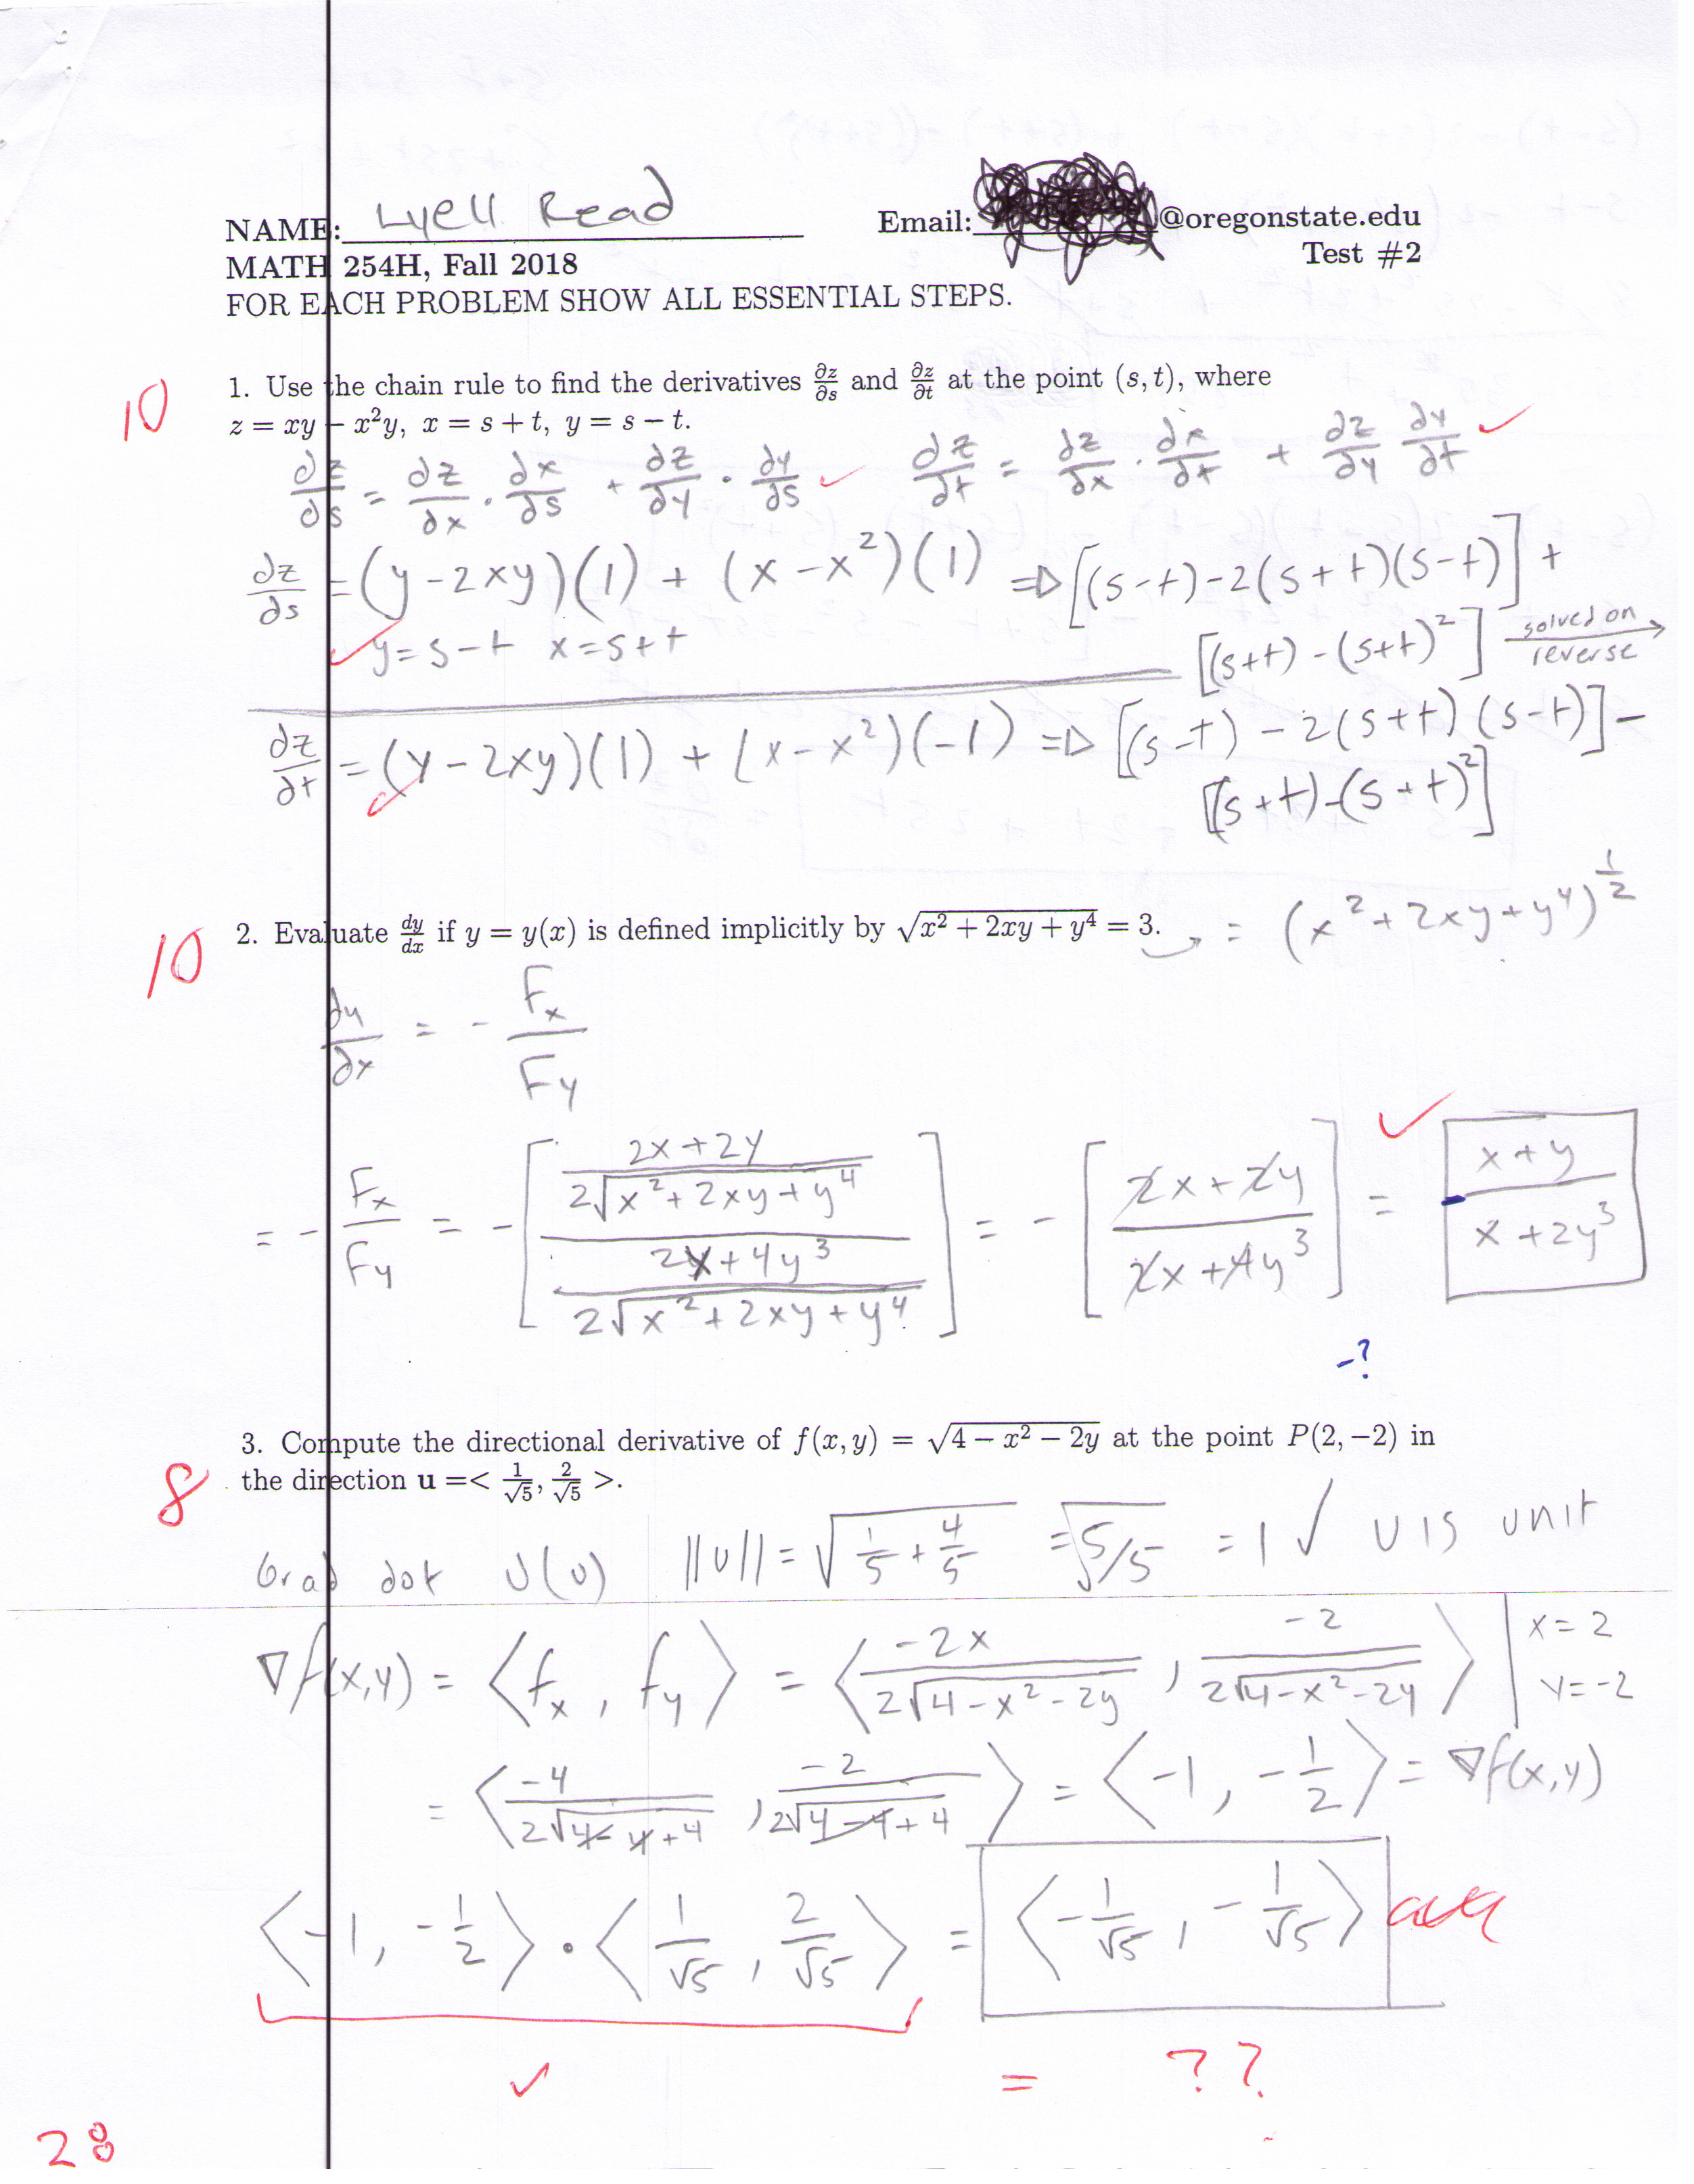 NAME: Lyell Read Email: @oregonstate.edu
MATH 254H, Fall 2018 Test #2
FOR EACH PROBLEM SHOW ALL ESSENTIAL STEPS.
10
1. Use the chain rule to find the derivatives ∂z/∂s and ∂z/∂t at the point (s, t), where
z = xy − x²y, x = s + t, y = s − t.
∂z/∂s = ∂z/∂x · ∂x/∂s + ∂z/∂y · ∂y/∂s ✓ ∂z/∂t = ∂z/∂x · ∂x/∂t + ∂z/∂y ∂y/∂t ✓
∂z/∂s = (y - 2xy)(1) + (x - x²)(1) => [(s-t) - 2(s+t)(s-t)] +
✓ y = s-t x = s+t [(s+t) - (s+t)²] solved on reverse →
∂z/∂t = (y - 2xy)(1) + (x - x²)(-1) => [(s-t) - 2(s+t)(s-t)] -
[(s+t) - (s+t)²]
10
2. Evaluate dy/dx if y = y(x) is defined implicitly by √(x² + 2xy + y⁴) = 3. = (x² + 2xy + y⁴)^(1/2)
∂y/∂x = - Fx/Fy
= - Fx/Fy = - [ (2x+2y)/(2√(x²+2xy+y⁴)) / (2x+4y³)/(2√(x²+2xy+y⁴)) ] = - [ (2x+2y)/(2x+4y³) ] ✓ = - (x+y)/(x+2y³)
-?
8
3. Compute the directional derivative of f(x, y) = √(4 − x² − 2y) at the point P(2, −2) in
the direction u =< 1/√5, 2/√5 >.
Grad dot U(u) ||u|| = √(1/5 + 4/5) = √5/5 = 1 ✓ U is unit
∇f(x,y) = ⟨fx, fy⟩ = ⟨-2x/(2√(4-x²-2y)), -2/(2√(4-x²-2y))⟩ | x=2 y=-2
= ⟨-4/(2√(4-4+4)), -2/(2√(4-4+4))⟩ = ⟨-1, -1/2⟩ = ∇f(x,y)
⟨-1, -1/2⟩ · ⟨1/√5, 2/√5⟩ = ⟨-1/√5, -1/√5⟩
✓ = ??
28